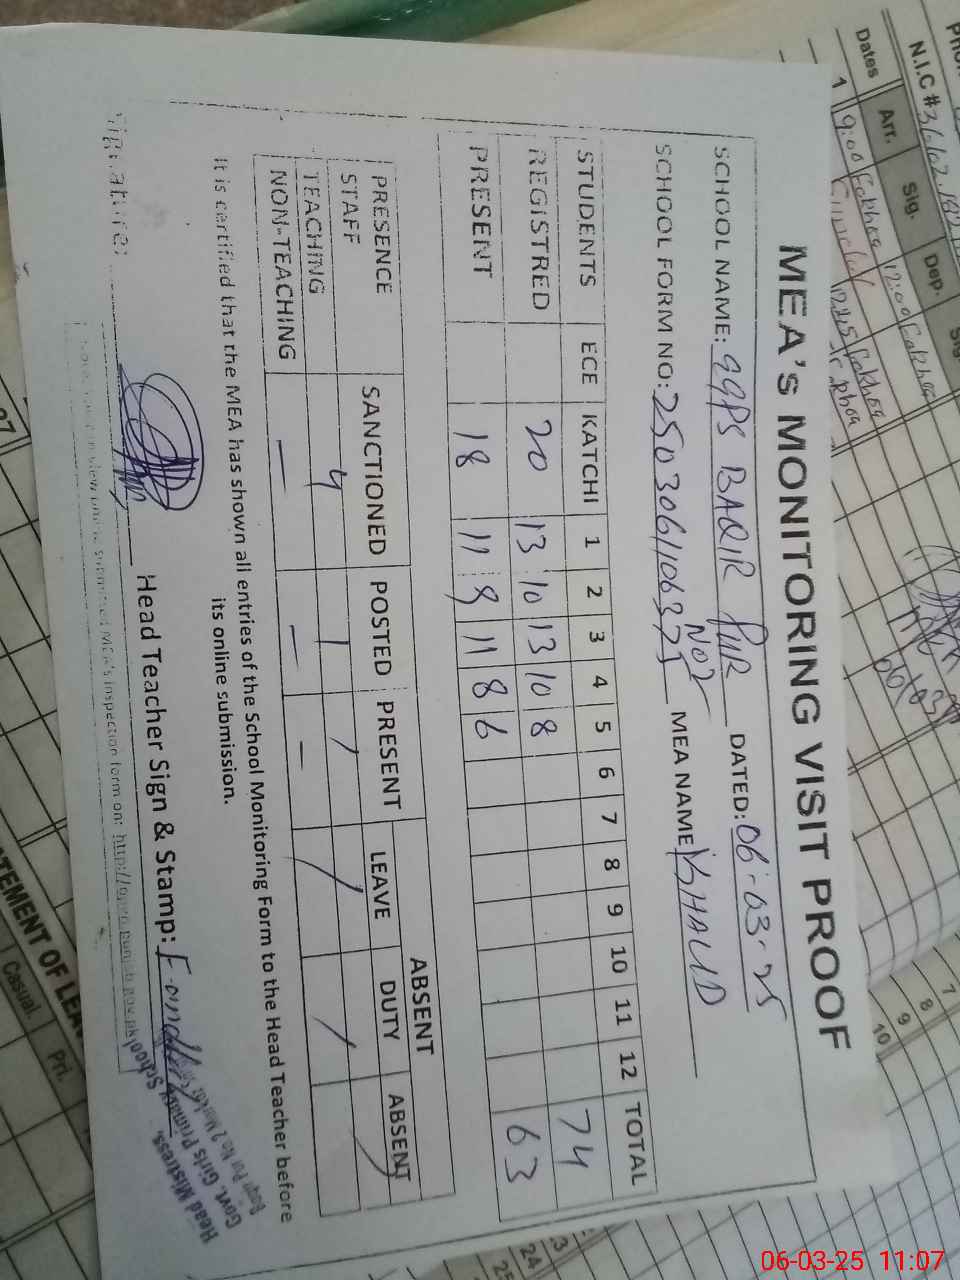 MEA's MONITORING VISIT PROOF
SCHOOL NAME: GGPS BAQIR PUR No 2 DATED: 06-03-25
SCHOOL FORM NO: MEA NAME KHALID
STUDENTS ECE KATCHI 1 2 3 4 5 6 7 8 9 10 11 12 TOTAL
REGISTRED 20 13 10 13 10 8 74
PRESENT 18 11 9 11 8 6 63
PRESENCE STAFF SANCTIONED POSTED PRESENT ABSENT
LEAVE DUTY ABSENT
TEACHING 4 1 1 / / /
NON-TEACHING — — —
It is certified that the MEA has shown all entries of the School Monitoring Form to the Head Teacher before
its online submission.
Signature: Head Teacher Sign & Stamp:
Head Mistress,
Govt. Girls Primary School
submitted MEA's inspection form on:
N.I.C #
Dates Arr. Sig. Dep. Sig
1 9:00 12:00
7
8
9
10
24
25
27
STATEMENT OF LEA
Casual. Pri.
06-03-25 11:07